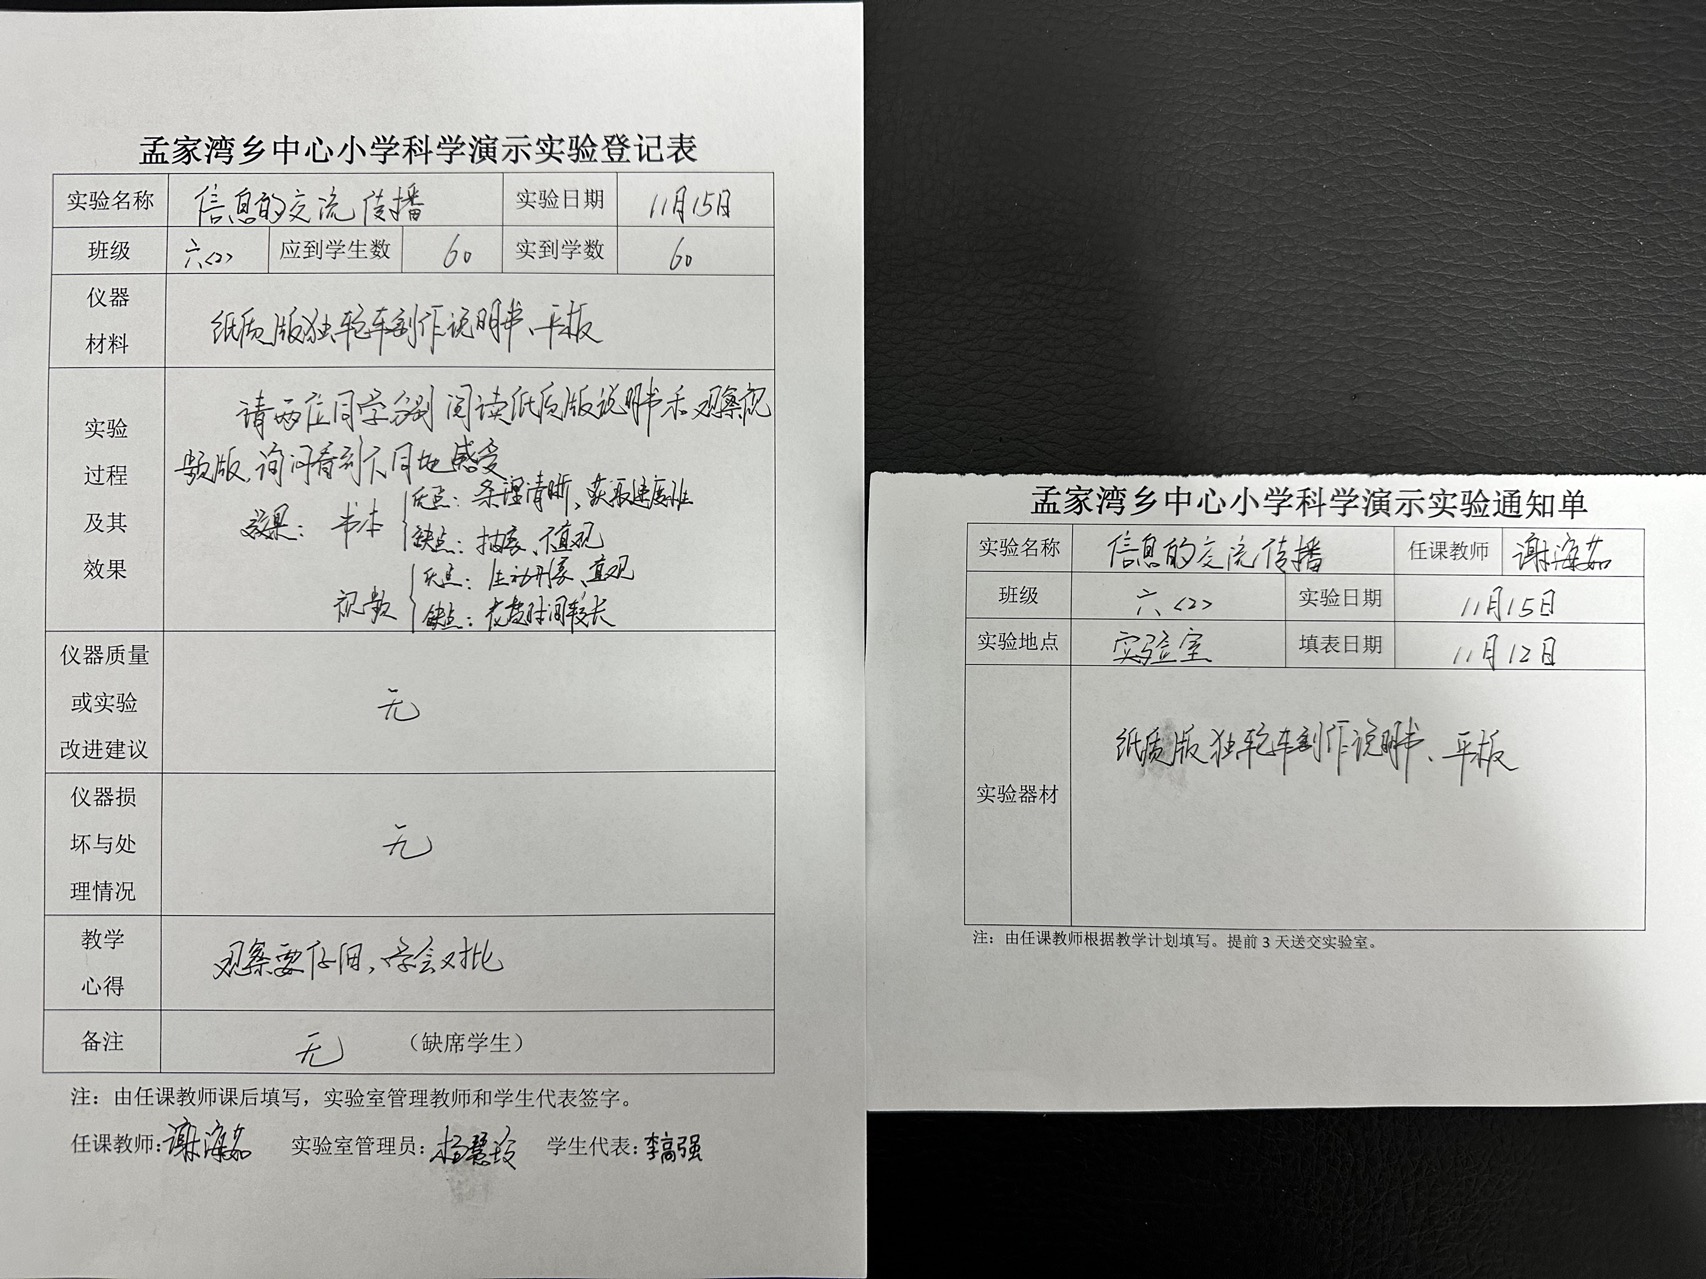 孟家湾乡中心小学科学演示实验登记表
实验名称 信息的交流传播 实验日期 11月15日
班级 六<2> 应到学生数 60 实到学数 60
仪器
材料
纸质版独轮车制作说明书、平板
实验
过程
及其
效果
请两位同学分别阅读纸质版说明书和观察视
频版,询问看到不同地感受
效果: 书本
优点: 条理清晰、获取速度
缺点: 抽象、不直观
视频
优点: 生动形象、直观
缺点: 花费时间较长
仪器质量
或实验
改进建议
无
仪器损
坏与处
理情况
无
教学
心得
观察要仔细,学会对比
备注 无 (缺席学生)
注:由任课教师课后填写,实验室管理教师和学生代表签字。
任课教师:谢海茹 实验室管理员:杨慧玲 学生代表:李高强
孟家湾乡中心小学科学演示实验通知单
实验名称 信息的交流传播 任课教师 谢海茹
班级 六<2> 实验日期 11月15日
实验地点 实验室 填表日期 11月12日
实验器材 纸质版独轮车制作说明书、平板
注:由任课教师根据教学计划填写。提前3天送交实验室。